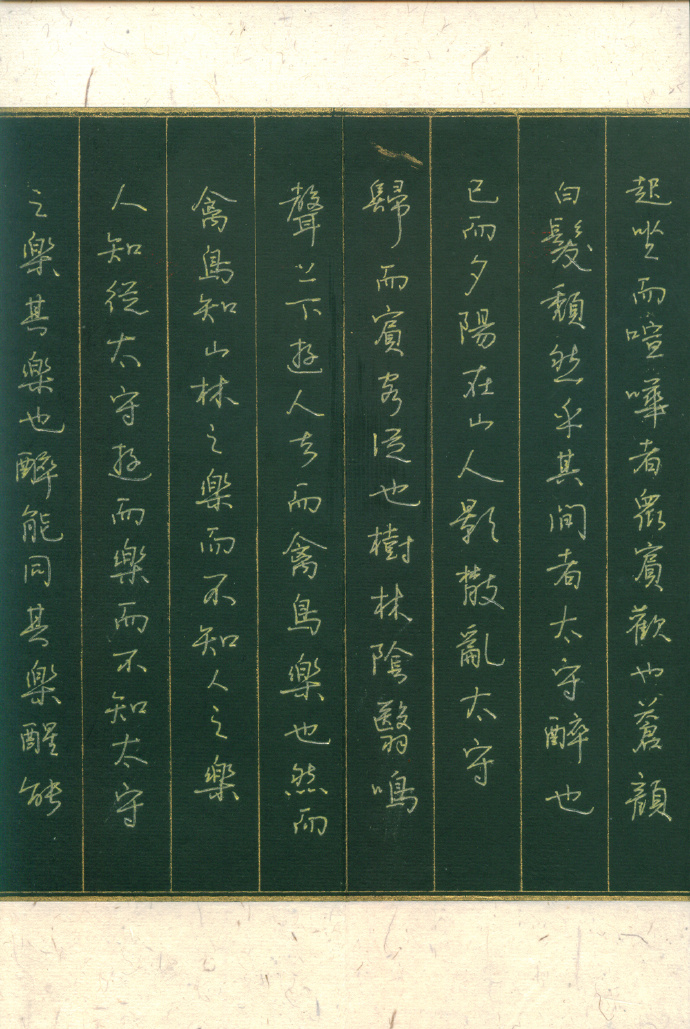 起坐而喧嘩者眾賓歡也蒼顏
白髮頹然乎其间者太守醉也
已而夕陽在山人影散亂太守
歸而賓客從也樹林陰翳鳴
聲上下遊人去而禽鳥樂也然而
禽鳥知山林之樂而不知人之樂
人知從太守遊而樂而不知太守
之樂其樂也醉能同其樂醒能